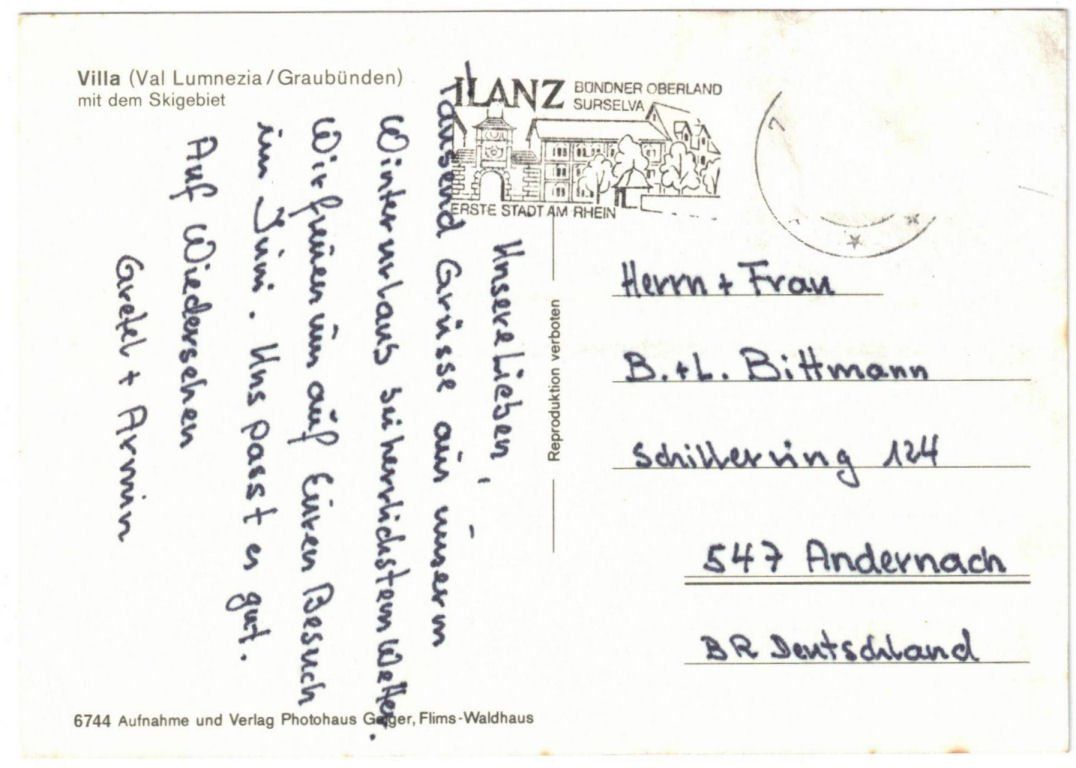 Villa (Val Lumnezia/Graubünden)
mit dem Skigebiet
ILANZ
BÜNDNER OBERLAND
SURSELVA
ERSTE STADT AM RHEIN
Unsere Lieben
Tausend Grüsse aus unserm
Winterurlaub bei herrlichstem Wetter.
Wir freuen uns auf Euren Besuch
im Juni. Uns passt es gut.
Auf Wiedersehen
Gretel + Armin
Reproduktion verboten
Herrn + Frau
B. + L. Bittmann
Schillerring 124
547 Andernach
BR Deutschland
6744 Aufnahme und Verlag Photohaus Geiger, Flims-Waldhaus